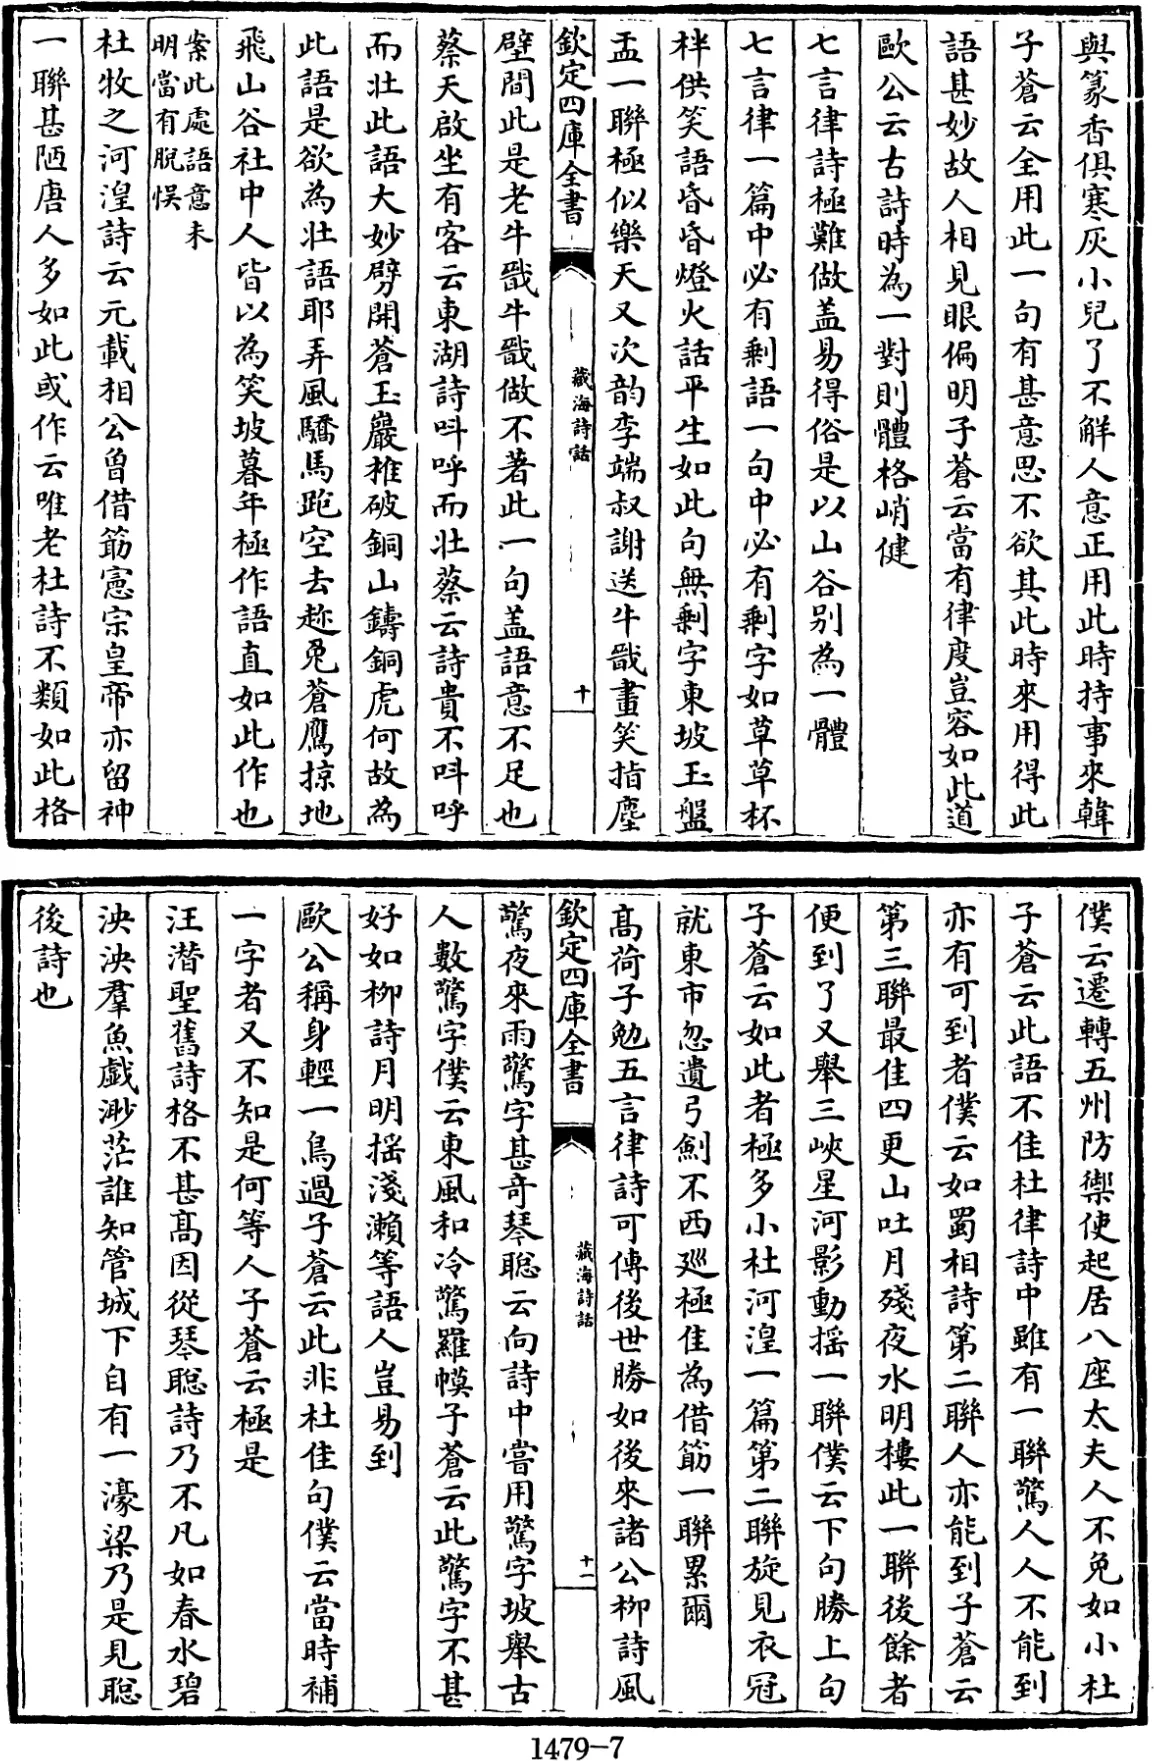 與篆香俱寒灰小兒了不解人意正用此時持事來韓
子蒼云全用此一句有甚意思不欲其此時來用得此
語甚妙故人相見眼偏明子蒼云當有律度豈容如此道
歐公云古詩時為一對則體格峭健
七言律詩極難做盖易得俗是以山谷别為一體
七言律一篇中必有剩語一句中必有剩字如草草杯
柈供笑語昏昏燈火話平生如此句無剩字東坡玉盤
盂一聯極似樂天又次韵李端叔謝送牛戩畫笑指塵
欽定四庫全書
藏海詩話
十
壁間此是老牛戩牛戩做不著此一句盖語意不足也
蔡天啟坐有客云東湖詩呌呼而壯蔡云詩貴不呌呼
而壯此語大妙劈開蒼玉巖推破銅山鑄銅虎何故為
此語是欲為壯語耶弄風驕馬跑空去趂兔蒼鷹掠地
飛山谷社中人皆以為笑坡暮年極作語直如此作也
案此處語意未
明當有脫悞
杜牧之河湟詩云元載相公曾借筯憲宗皇帝亦留神
一聯甚陋唐人多如此或作云唯老杜詩不類如此格
僕云遷轉五州防禦使起居八座太夫人不免如小杜
子蒼云此語不佳杜律詩中雖有一聯驚人人不能到
亦有可到者僕云如蜀相詩第二聯人亦能到子蒼云
第三聯最佳四更山吐月殘夜水明樓此一聯後餘者
便到了又舉三峽星河影動摇一聯僕云下句勝上句
子蒼云如此者極多小杜河湟一篇第二聯旋見衣冠
就東市忽遺弓劒不西廵極佳為借筯一聯累爾
髙荷子勉五言律詩可傳後世勝如後來諸公柳詩風
欽定四庫全書
藏海詩話
十一
驚夜來雨驚字甚奇琴聪云向詩中嘗用驚字坡舉古
人數驚字僕云東風和冷驚羅幙子蒼云此驚字不甚
好如柳詩月明摇淺瀨等語人豈易到
歐公稱身輕一鳥過子蒼云此非杜佳句僕云當時補
一字者又不知是何等人子蒼云極是
汪潛聖舊詩格不甚髙因從琴聪詩乃不凡如春水碧
泱泱羣魚戯渺茫誰知管城下自有一濠梁乃是見聪
後詩也
1479–7